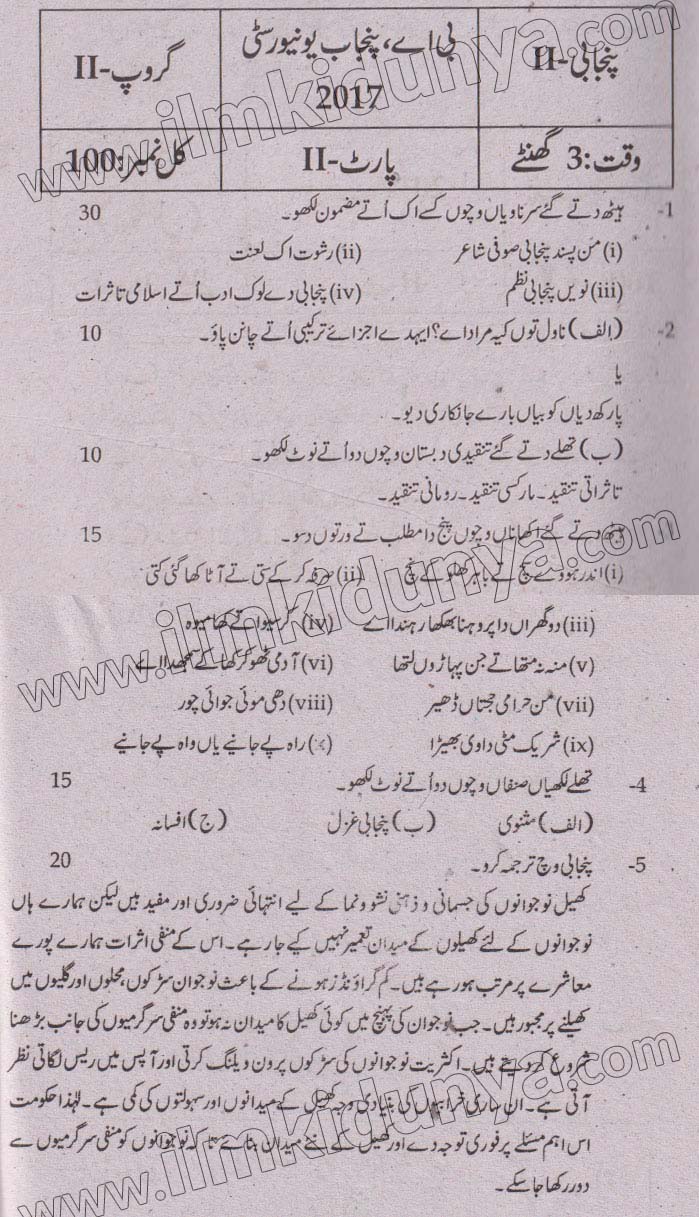 پنجابی-II
بی اے، پنجاب یونیورسٹی 2017
گروپ-II
وقت: 3 گھنٹے
پارٹ-II
کل نمبر: 100
1- ہیٹھ دتے گئے سرناویاں وچوں کسے اک اُتے مضمون لکھو۔ 30
(i) من پسند پنجابی صوفی شاعر (ii) رشوت اک لعنت
(iii) نویں پنجابی نظم (iv) پنجابی دے لوک ادب اُتے اسلامی تاثرات
2- (الف) ناول توں کیہ مراد اے؟ ایہدے اجزائے ترکیبی اُتے چانن پاؤ۔ 10
یا
پارکھ دیاں کو بیاں بارے جانکاری دیو۔
(ب) تھلے دتے گئے تنقیدی دبستان وچوں دو اُتے نوٹ لکھو۔ 10
تاثراتی تنقید۔ مارکسی تنقید۔ رومانی تنقید۔
ہیٹھ دتے گئے اکھاناں وچوں پنج دا مطلب تے ورتوں دسو۔ 15
(i) اندر ہووے سچ تے باہر کھلو کے نچ (ii) صرفہ کر کے ستی تے آٹا کھا گئی کتی
(iii) دو گھراں دا پروہنا بھکھا رہندا اے (iv) کر سیوا تے کھا میوہ
(v) منہ نہ متھا تے جن پہاڑوں لتھا (vi) آدمی ٹھوکر کھا کے سمجھدا اے
(vii) من حرامی حجتاں ڈھیر (viii) دھی موئی جوائی چور
(ix) شریک مٹی دا وی بھیڑا (x) راہ پے جانیے یاں واہ پے جانیے
4- تھلے لکھیاں صنفاں وچوں دو اُتے نوٹ لکھو۔ 15
(الف) مثنوی (ب) پنجابی غزل (ج) افسانہ
5- پنجابی وچ ترجمہ کرو۔ 20
کھیل نوجوانوں کی جسمانی و ذہنی نشوونما کے لیے انتہائی ضروری اور مفید ہیں لیکن ہمارے ہاں
نوجوانوں کے لئے کھیلوں کے میدان تعمیر نہیں کیے جا رہے۔ اس کے منفی اثرات ہمارے پورے
معاشرے پر مرتب ہو رہے ہیں۔ کم گراؤنڈز ہونے کے باعث نوجوان سڑکوں، محلوں اور گلیوں میں
کھیلنے پر مجبور ہیں۔ جب نوجوان کی پہنچ میں کوئی کھیل کا میدان نہ ہو تو وہ منفی سرگرمیوں کی جانب بڑھنا
شروع کر دیتے ہیں۔ اکثریت نوجوانوں کی سڑکوں پر ون ویلنگ کرتی اور آپس میں ریس لگاتی نظر
آتی ہے۔ ان ساری خرابیوں کی بنیادی وجہ کھیل کے میدانوں اور سہولتوں کی کمی ہے۔ لہٰذا حکومت
اس اہم مسئلے پر فوری توجہ دے اور کھیل کے نئے میدان بنائے تاکہ نوجوانوں کو منفی سرگرمیوں سے
دور رکھا جا سکے۔
www.ilmkidunya.com
www.ilmkidunya.com
www.ilmkidunya.com
www.ilmkidunya.com